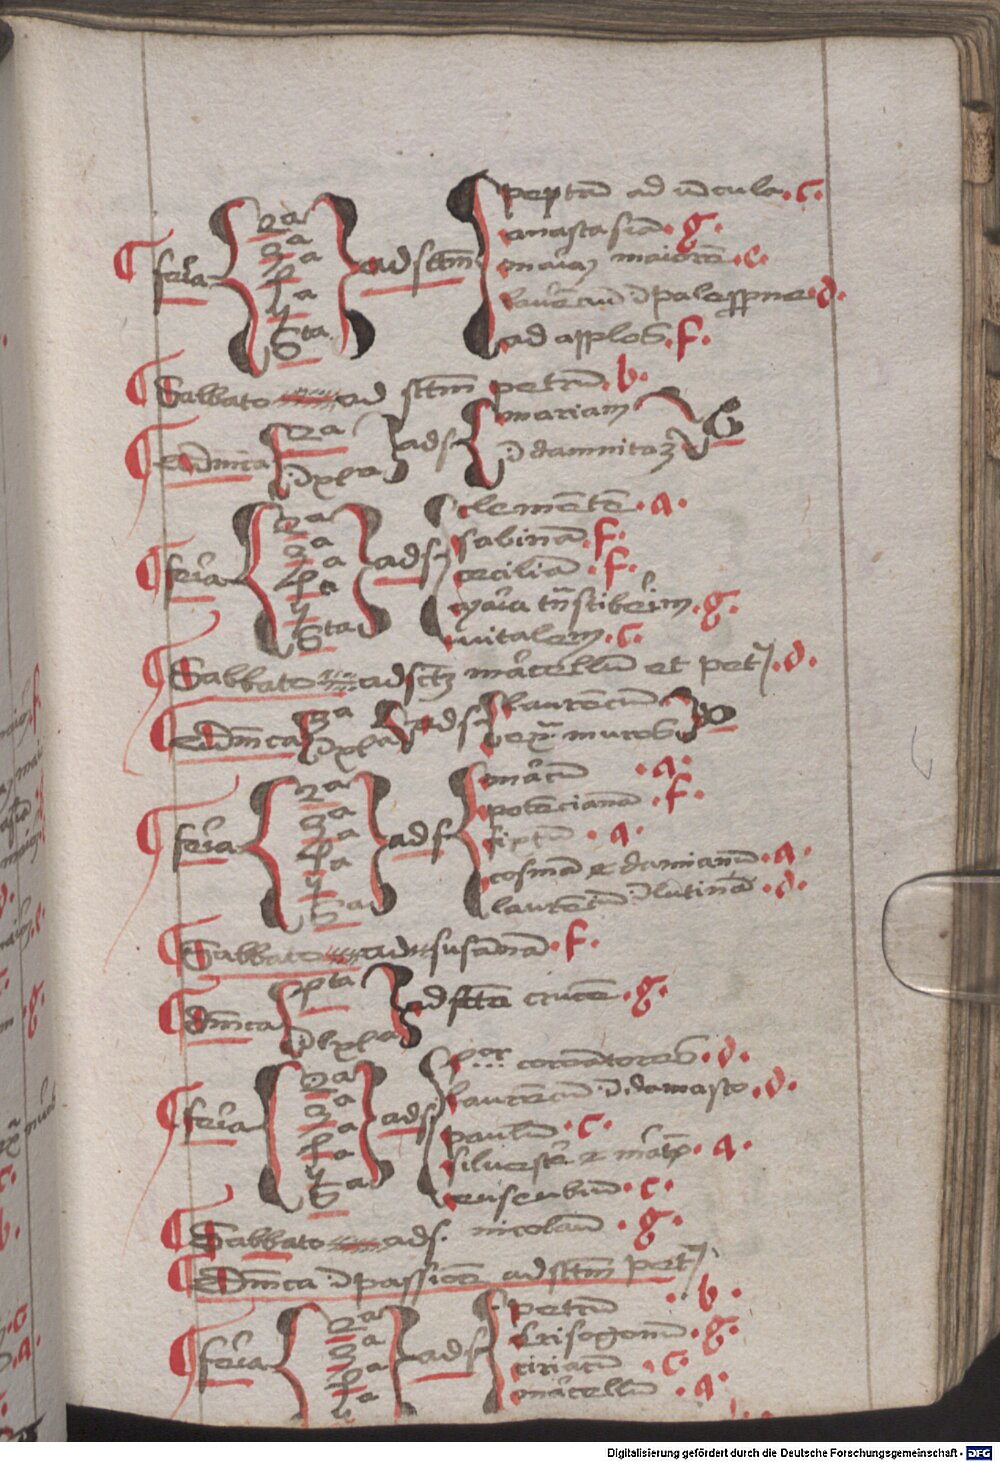 feria 2a 3a 4a 5a Sta ad sctm petrum ad uincula . c .
anastasiam . g .
maiorem . c .
laurencium palesperne . d .
ad applos . f .
Sabbato ad sctm petrum . b .
Dmca 2a xla ad s mariam G
damnitaz
feria 2a 3a 4a 5a Sta ad s clementem . a .
sabinam f .
ceciliam . f .
maria tnstiberim . g .
uitalem . c .
Sabbato ad sctm marcellum et petrum . d .
Dmca 3a xla ad s laurencium D
ex muros
feria 2a 3a 4a 5a 6a ad s marcum . a .
potencianam . f .
sixtum . a .
cosmam et damianum . a .
laurencium lucinam . d .
Sabbato ad susannam . f .
Dmca 4ta xla ad sctam crucem . g .
feria 2a 3a 4a 5a 6a ad s 4or coronatores . d .
laurencium damaso . d .
paulum . c .
siluestrum et martinum . a .
eusebium . c .
Sabbato ad s. nicolaum . g .
Dmca passione ad sctm petrum
. b .
feria 2a 3a 4a 5a ad s petrum
crisogonum . g .
ciriacum . c .
marcellum . a .
Digitalisierung gefördert durch die Deutsche Forschungsgemeinschaft - DFG